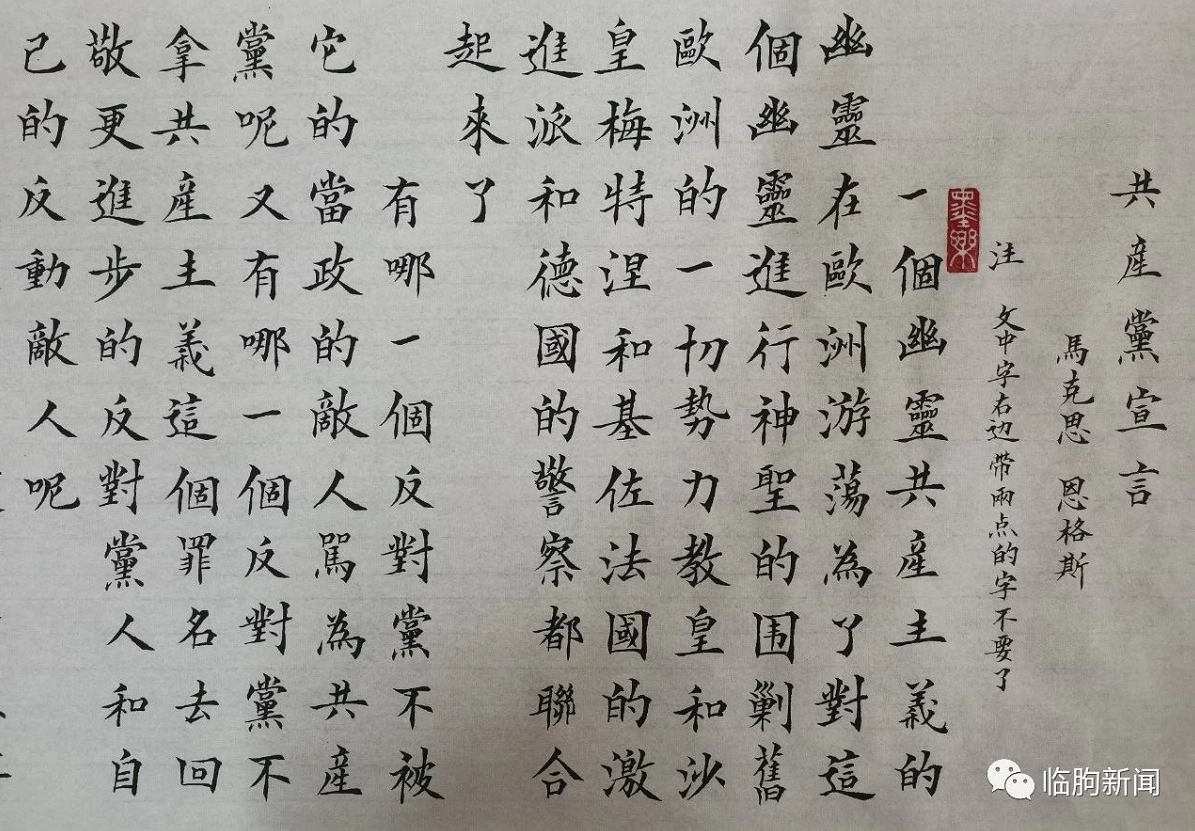 共產黨宣言
馬克思 恩格斯
注 文中字右边带兩点的字不要了
一個幽靈共產主義的
幽靈在歐洲游蕩為了對這
個幽靈進行神聖的围剿舊
歐洲的一切勢力教皇和沙
皇梅特涅和基佐法國的激
進派和德國的警察都聯合
起來了
有哪一個反對黨不被
它的當政的敵人罵為共產
黨呢又有哪一個反對黨不
拿共產主義這個罪名去回
敬更進步的反對黨人和自
己的反動敵人呢
临朐新闻